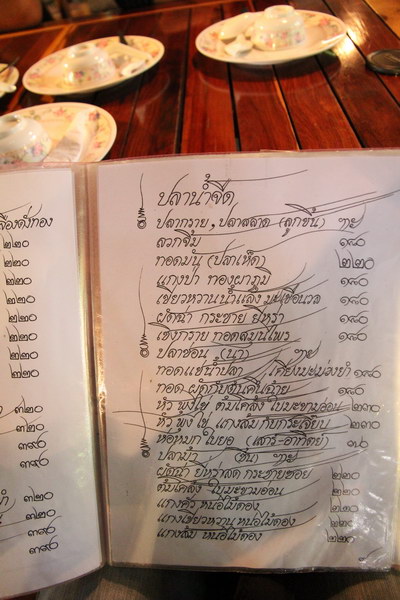 สืองดังทอง
๒๒๐
๒๒๐
๒๒๐
๒๒๐
๒๒๐
๒๒๐
๓๒๐
๓๒๐
๓๙๐
๓๙๐
๓๒๐
๓๒๐
๓๙๐
ปลาน้ำจืด
ปลากราย, ปลาสลาด (ลูกชิ้น)
ลวกจิ้ม ๑๘๐
ทอดมัน (ปลาเห็ด) ๒๒๐
แกงป่า ทองผาภูมิ ๑๘๐
เขียวหวานน้ำแล้ง มะเขือนวล ๑๘๐
ผัดฉ่า กระชาย ยี่หร่า ๑๘๐
เชิงกราย ทอดสมุนไพร ๑๘๐
ปลาช่อน (นา)
ทอดแช่น้ำปลา (เคียงมะม่วงยำ) ๑๘๐
ทอด ผัดกับต้นคื่นฉ่าย ๑๘๐
หัว พุง ไข่ ต้มโคล้ง ใบมะขามอ่อน ๒๓๐
หัว พุง ไข่ แกงส้ม กับกระเจี๊ยบ ๒๓๐
ห่อหมก ใบยอ (เสาร์-อาทิตย์) ๗๐
ปลาม้า (ชิ้น)
ผัดฉ่า ยี่หร่าสด กระชายซอย ๒๒๐
ต้มโคล้ง ใบมะขามอ่อน ๒๒๐
แกงคั่ว หน่อไม้ดอง ๒๒๐
แกงเขียวหวาน หน่อไม้ดอง ๒๒๐
แกงส้ม หน่อไม้ดอง ๒๒๐